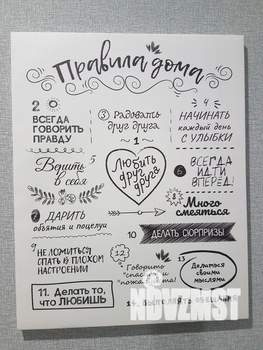 Правила дома
2
ВСЕГДА
ГОВОРИТЬ
ПРАВДУ
3 Радовать
друг друга
4
НАЧИНАТЬ
каждый день
С УЛЫБКИ
1
Любить
друг
друга
5
Верить
в себя
6 ВСЕГДА
ИДТИ
ВПЕРЕД!
7 ДАРИТЬ
объятия и поцелуи
8 Много
смеяться
9
НЕ ЛОЖИТЬСЯ
СПАТЬ В ПЛОХОМ
НАСТРОЕНИИ
10 ДЕЛАТЬ СЮРПРИЗЫ
11. Делать то,
что ЛЮБИШЬ
12
Говорить
"спасибо" и
"пожалуйста"
13
Делиться
своими
мыслями
ВЫПОЛНЯТЬ
NDVZMST